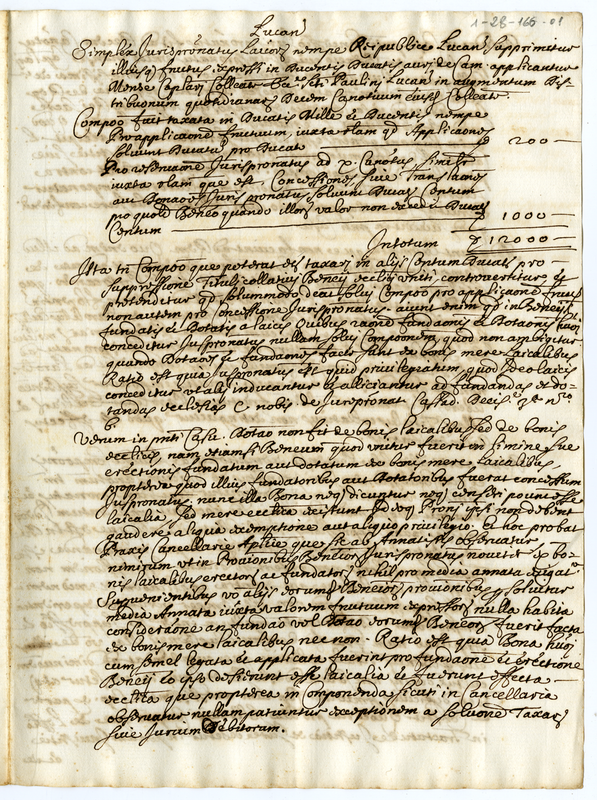 1-28-166-01
Lucan
Simplex Jurispronatus Laicor nempe Reipublice Lucan supprimitur
illiusq fructus expressi in Ducentis Ducatis auri de Cam applicantur
Mense Caplari Colleate Ecc Sti Paulini Lucan in augmentum Dis-
tribuonum quotidianar Decem Canoticum eiusd Colleate.
Compoo fuit taxata in Ducatis Mille et Ducentis nempe
Pro applicaone fructuum, iuxta rlam qd Applicaones
solvunt Ducatu pro Ducat 200
Pro reservaone Jurispronatus ad x. Canotus similr
iuxta rlam que est Concessiones sive Translaones
aut Donaoes Juris pronatus solvunt Ducat Centum
pro quolt Beneo quando illor valor non excedit Ducat
Centum 1000
Intotum 12000
Ista tn Compoo que poterat et taxari in alijs Centum Ducatis pro
suppressione Tituli collativi Beneij ecclie uniti, controvertitur et
pretenditur qd solummodo deat solvi Compoo pro applicaone fruct
non autem pro Concessione Jurispronatus. aiunt enim qd in Beneijs
fundatis et Dotatis a laicis Quibus raone fundaonis et Dotaonis huoi
conceditur Juspronatus nullam solvi Componem, quod non ambigitur
quando Dotaoes et fundaones facte sunt ex bonis mere laicalibus
Ratio est quia Juspronatus est quid privilegiatum quod ideo laicis
conceditur ut alij inducantur et alliciantur ad fundandas et do-
tandas ecclesias C nobis de Jurepronat Cassad. Decis.
Verum in pnti Casu. Dotao non fit de bonis laicalibus sed de bonis
ecclicis, nam etiamsi Beneum quod unitur fuerit in limine sue
erectionis fundatum aut dotatum ex bonis mere laicalibus
propterea quod illius fundatoribus aut Dotatoribus fuerat concessum
Juspronatus, nunc illa Bona neq dicuntur neq censeri possunt esse
laicalia sed mere ecclica existunt Ideoq Proni ipsi non debent
gaudere aliqua exemptione aut aliquo privilegio. Et hoc probat
Praxis Cancellarie Aplice que sic ab Annatistis observatur
nimirum ut in Provionibus Beneor Jurispronatus noviter ex bo-
nis laicalibus erector ac fundator nihil pro media annata exigat
Supvenientibus vo alijs eorumd Beneor provionibus, solvitur
media Annata iuxta valorem fructuum expressor nulla habita
consideraone an fundao vel Dotao eorumd Beneor fuerit facta
ex bonis mere laicalibus nec non. Ratio est quia Bona huoi
cum semel legata et applicata fuerint pro fundaone et erectione
Beneij eo ipso desierunt esse laicalia et fuerunt effecta
ecclica que propterea in componenda sicuti in Cancellaria
observatur nullam patiuntur exceptionem a solutione Taxar
sive Jurium Debitorum.